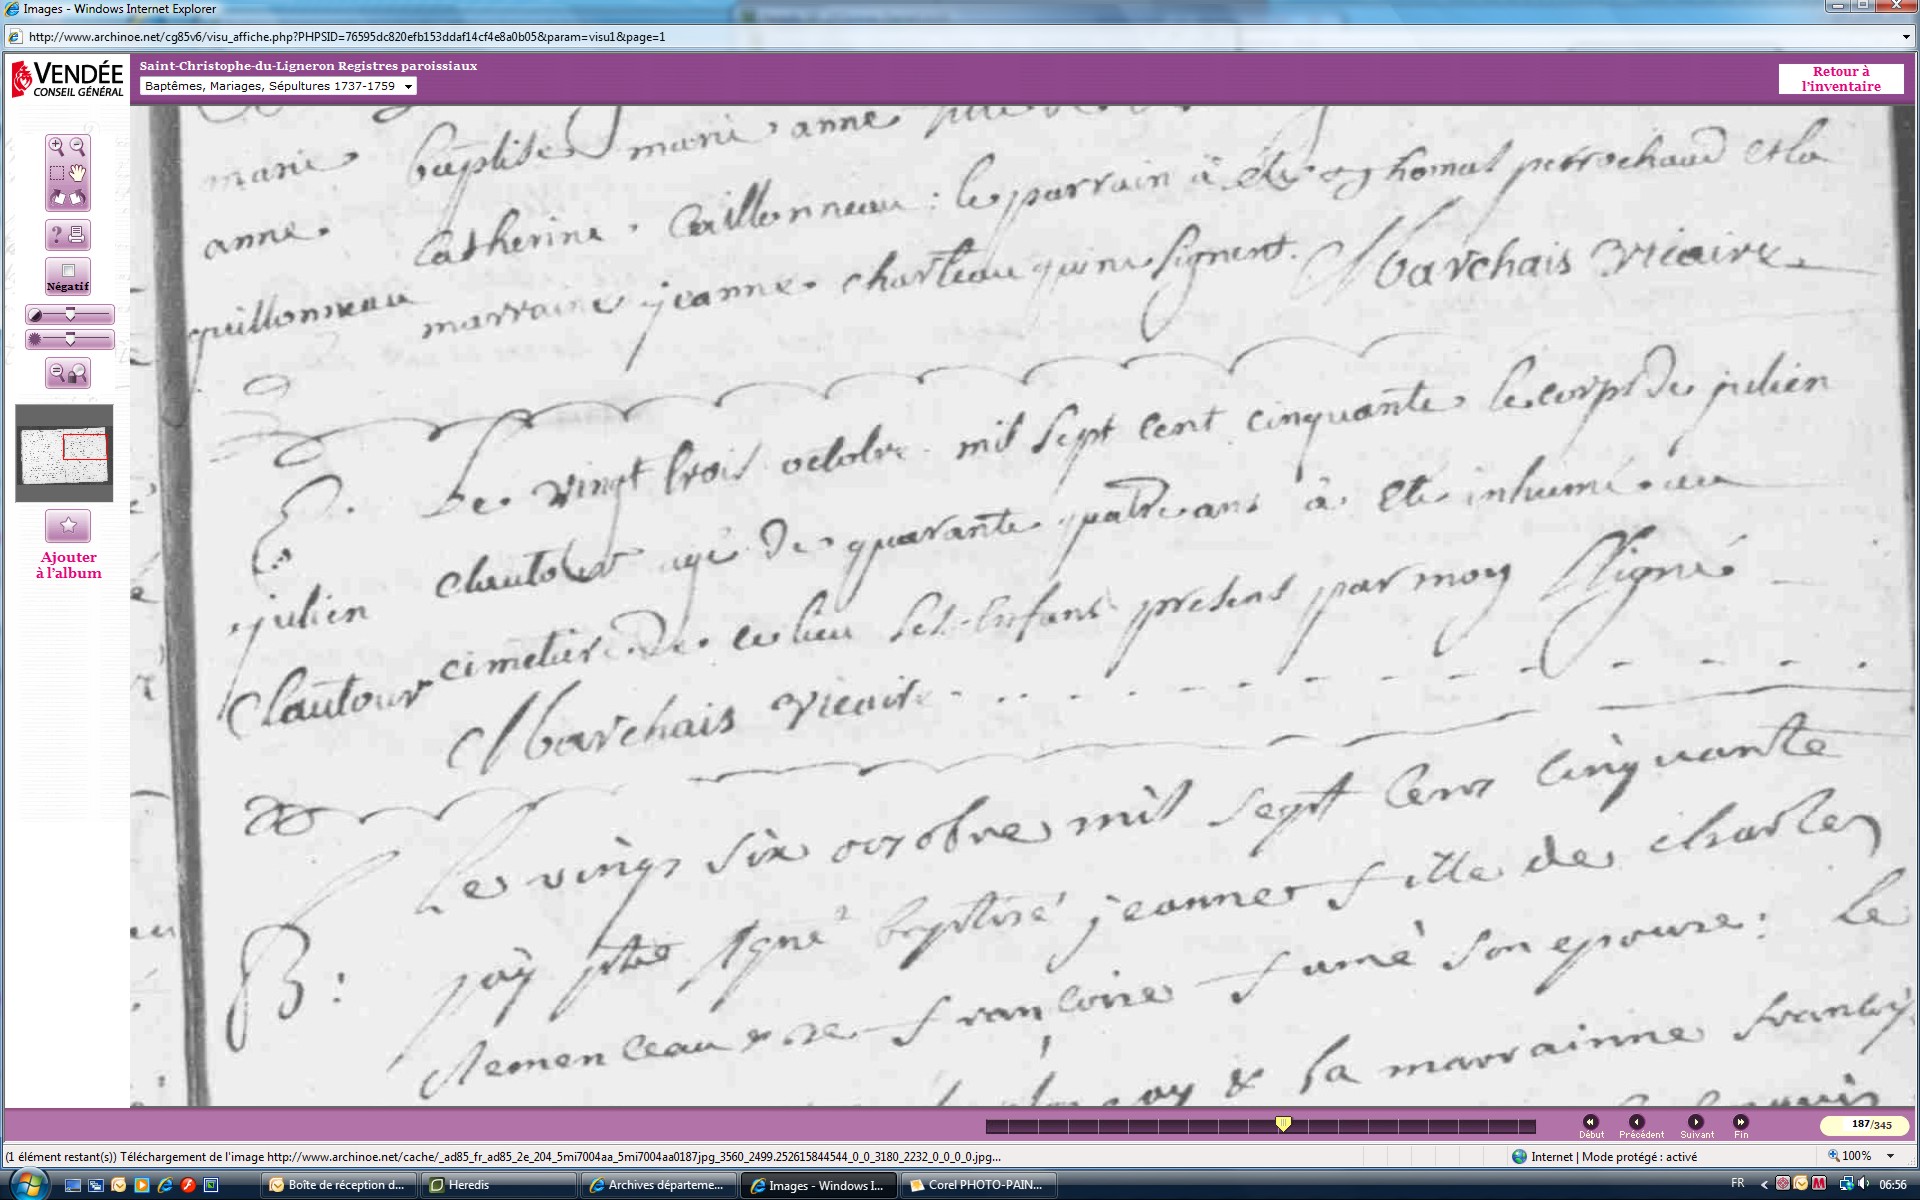 Images - Windows Internet Explorer
http://www.archinoe.net/cg85v6/visu_affiche.php?PHPSID=76595dc820efb153ddaf14cf4e8a0b05&param=visu1&page=1
VENDÉE
CONSEIL GÉNÉRAL
Saint-Christophe-du-Ligneron Registres paroissiaux
Baptêmes, Mariages, Sépultures 1737-1759
Retour à
l'inventaire
Négatif
Ajouter
à l'album
marie baptise marie anne
anne catherine Caillonneau : le parrain à été thomas perrochaud et la
guillonneau marraine jeanne charteau qui ne signent. Marchais vicaire
Le vingt trois octobre mil sept cent cinquante le corps de julien
julien clautour agé de quarante quatre ans à eté inhumé au
clautour cimetiere de ce lieu ses enfans presens par moy Signé
Marchais vicaire
Le vingt six octobre mil sept cens cinquante
B : jaÿ ptre signé baptisé jeanne fille de charles
clemenceau & de françoise famé son epouze : Le
& la marrainne
187/345
Début
Précédent
Suivant
Fin
(1 élément restant(s)) Téléchargement de l'image http://www.archinoe.net/cache/_ad85_fr_ad85_2e_204_5mi7004aa_5mi7004aa0187jpg_3560_2499.252615844544_0_0_3180_2232_0_0_0_0.jpg...
Internet | Mode protégé : activé
100%
Boîte de réception d...
Heredis
Archives départeme...
Images - Windows I...
Corel PHOTO-PAIN...
FR
06:56